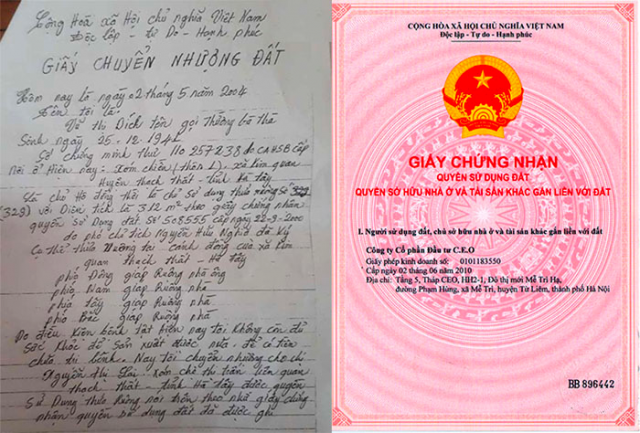 Cộng Hòa xã Hội chủ nghĩa Việt Nam
Độc lập - Tự Do - Hạnh phúc
GIẤY CHUYỂN NHƯỢNG ĐẤT
Hôm nay là ngày 02 tháng 5 năm 2004
Tên tôi là
Vũ thị Dích tên gọi Thường bà thá
Sinh ngày 25-12-194
Số chứng minh thư 110257238 do CAHSB cấp
Nơi ở Hiện nay: Xóm chiến (thôn 1) xã Kim quan
Huyện thạch thất - tỉnh Hà tây
Là chủ Hộ đồng thời là chủ sử dụng thửa ruộng số
(329) với Diện tích là 312 m² theo giấy chứng nhận
quyền sử Dụng đất số 508555 cấp ngày 22-9-200
do phó chủ tịch Nguyễn Hữu Nghĩa đã ký
Cụ thể thửa Ruộng tại cánh đồng của xã Kim
quan thạch thất - Hà tây
phía Đông giáp Ruộng nhà ông
phía Nam giáp Ruộng nhà
phía Tây giáp Ruộng nhà
phía Bắc giáp Ruộng nhà
Do điều kiện bệnh tật hiện nay tôi không còn đủ
sức khỏe để sản xuất được nữa. để có tiền
chữa trị bệnh. Nay tôi chuyển nhượng cho chị
Nguyễn Thị Hai - xóm chợ thị trấn liên quan
thạch thất - tỉnh Hà tây được quyền
sử Dụng thửa Ruộng nói trên theo như giấy chứng
nhận quyền sử dụng đất đã được ghi
CỘNG HÒA XÃ HỘI CHỦ NGHĨA VIỆT NAM
Độc lập - Tự do - Hạnh phúc
GIẤY CHỨNG NHẬN
QUYỀN SỬ DỤNG ĐẤT
QUYỀN SỞ HỮU NHÀ Ở VÀ TÀI SẢN KHÁC GẮN LIỀN VỚI ĐẤT
I. Người sử dụng đất, chủ sở hữu nhà ở và tài sản khác gắn liền với đất
Công ty Cổ phần Đầu tư C.E.O
Giấy phép kinh doanh số: 0101183550
Cấp ngày 02 tháng 06 năm 2010
Địa chỉ: Tầng 5, Tháp CEO, HH2-1, Đô thị mới Mễ Trì Hạ,
đường Phạm Hùng, xã Mễ Trì, huyện Từ Liêm, thành phố Hà Nội
BB 896442